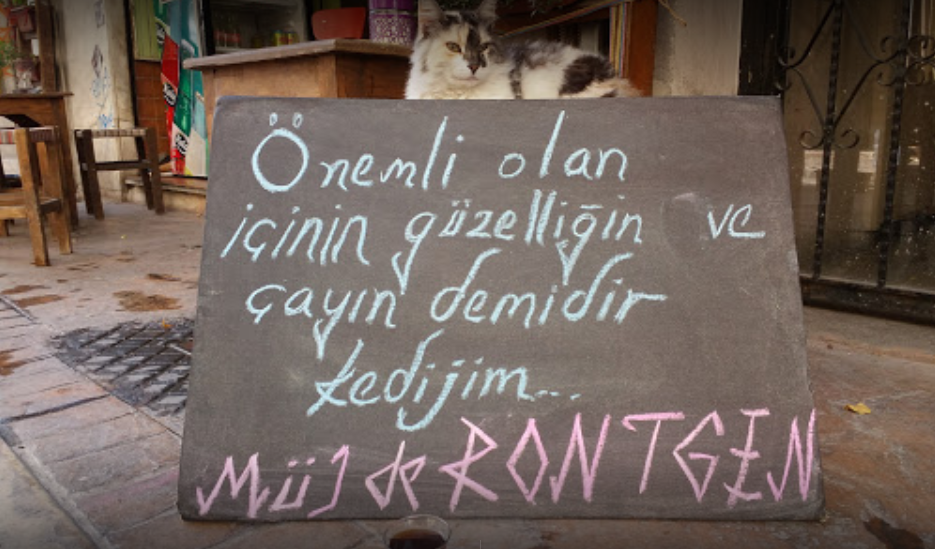 Önemli olan
içinin güzelliğin ve
çayın demidir
kedijim...
MüJde RONTGEN